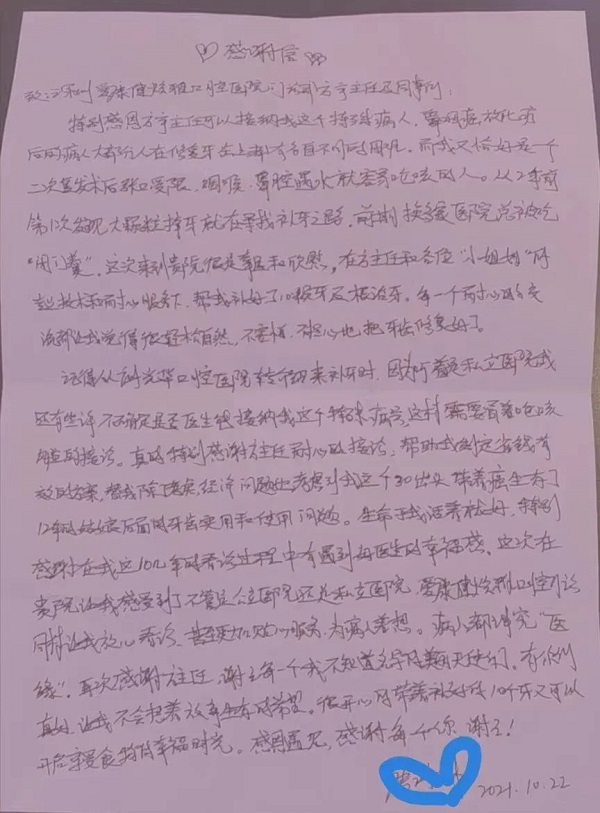 感谢信
致：深圳爱康健 口腔医院门诊部方主任及同事们：
特别感恩方主任可以接纳我这个特殊病人，鼻咽癌放化疗
后的病人大部分人在修复牙齿上都有各自不同的困难。而我又恰好是一个
二次复发术后张口受限，咽喉、鼻腔遇水就容易呛咳的人。从2年前
第1次发现大颗粒掉牙就在寻找补牙之路，前期 医院总被吃
“闭门羹”。这次来到贵院很是幸运和欣慰，在方主任和各位“小姐姐”的
专业技术和耐心服务下，帮我补好了10颗牙及根治牙。每一个耐心的交
流都让我觉得很轻松自然，不害怕、不担心也把牙齿修复好了。
记得从 光华口腔医院转 来补牙时，因为 是私立医院我
还有些许不确定是否医生能接纳我这个特殊病号，这样需要冒着呛咳
的接诊。真的特别感谢方主任耐心的接诊，帮助我制定省钱有
效的方案，替我 经济问题也考虑到我这个30出头带着癌生存了
12年的姑娘后面的牙齿实用和使用问题。生命于我活着就好，特别
感谢在我这10几年的看诊过程中有遇到好医生的幸福感，这次在
贵院让我感受到了不管是公立医院还是私立医院，爱康健 口腔门诊
同样让我放心看诊，甚至更加贴心服务，为病人着想。病人都讲究“医
缘”。再次感谢方主任，谢谢每一个我不知道名字的美丽天使们，有你们
真好，让我不会想着放弃生存的希望。很开心的带着补好的10颗牙又可以
开启享受食物的幸福时光。感恩遇见，感谢每个你 谢谢！
2021.10.22